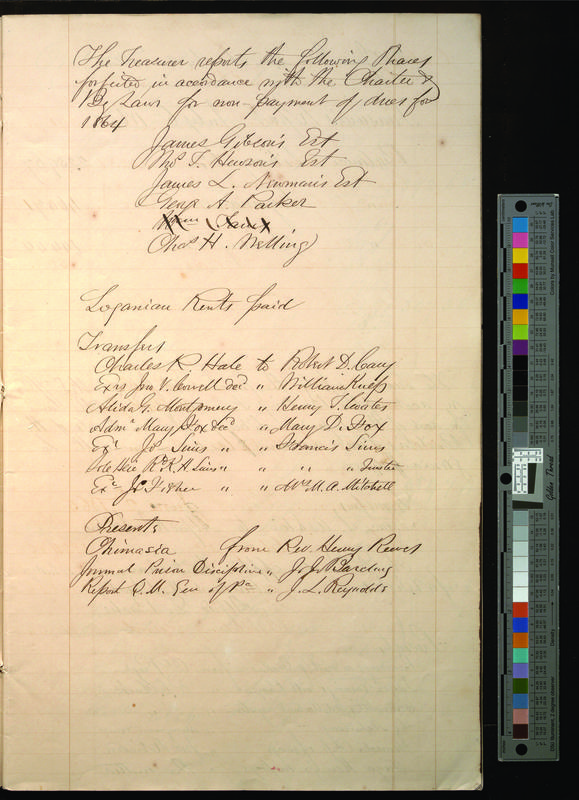 The Treasurer reports the following Shares
forfeited in accordance with the Charter &
Bylaws for non-payment of dues for
1864
James Gibson's Est
Thos T. Hewson's Est
James L. Newman's Est
George A. Parker
Chas H. Welling
Loganian Rents paid
Transfers
Charles R Hale to Robert D. Cary
Exrs Jno V. Cowell decd " William
Alida G. Montgomery " Henry T. Coates
Admr Mary Fox decd " Mary D. Fox
Exr Js Sims " " Francis Sims
R. H Sims " " " " Trustee
Exr Js Fisher " " Mrs M. A. Mitchell
Presents
from Rev. Henry Reeves
Journal Prison Discipline " J. J. Barclay
Report Q. M. Gen of Pa " J. L. Reynolds